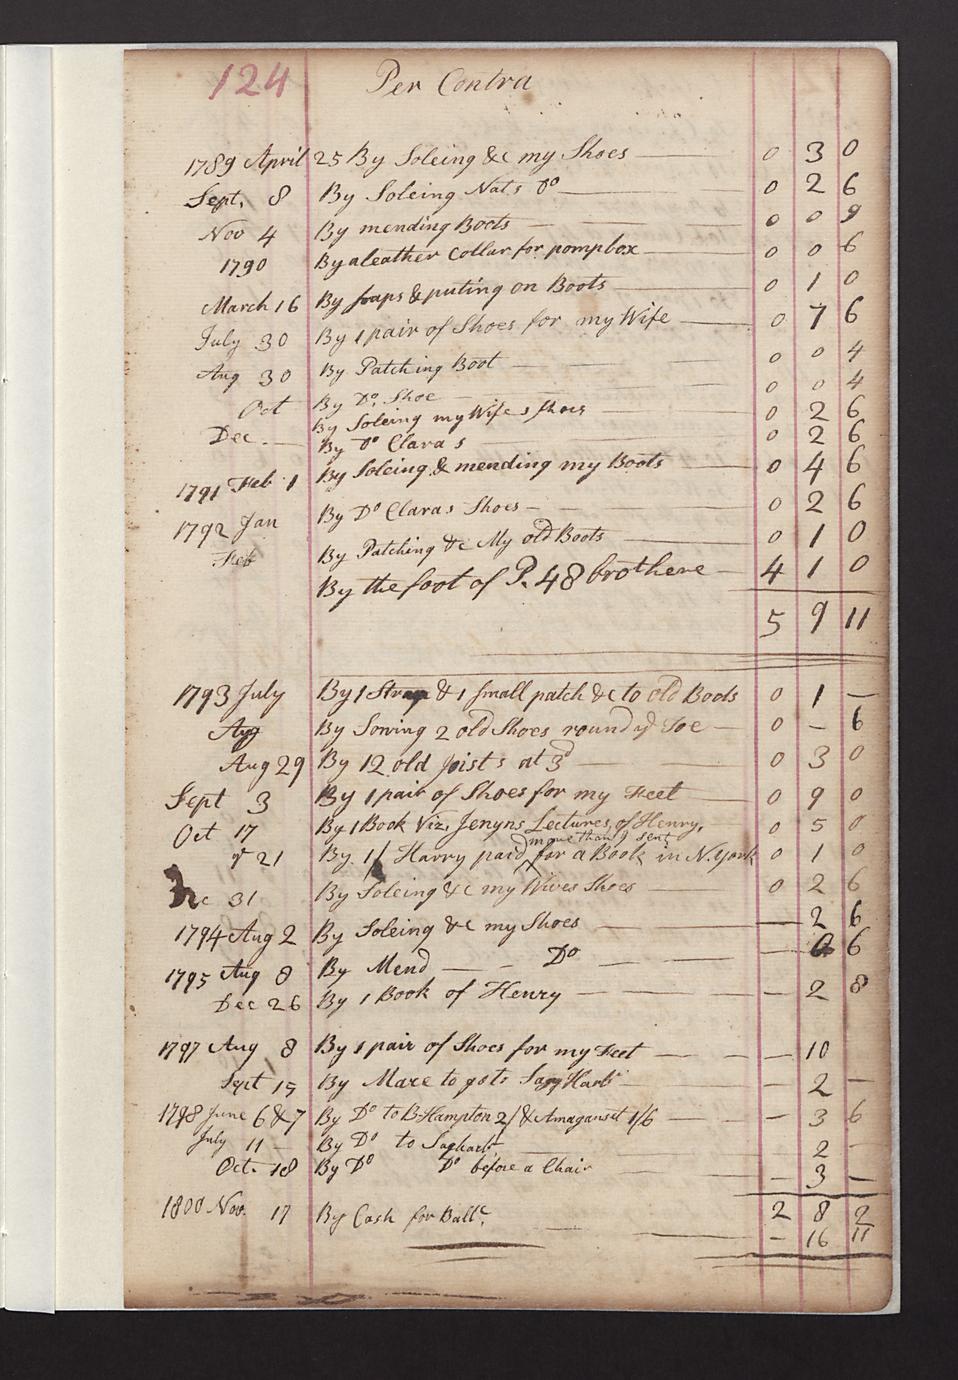 124 Per Contra
1789 April 25 By Soleing &c my Shoes 0 3 0
Sept. 8 By Soleing Nats Do 0 2 6
Nov 4 By mending Boots 0 0 9
1790 By a leather Collar for pompbox 0 0 6
March 16 By & puting on Boots 0 1 0
July 30 By 1 pair of Shoes for my Wife 0 7 6
Aug 30 By Patching Boot 0 0 4
Oct By Do. Shoe 0 0 4
By Soleing my Wife s shoes 0 2 6
Dec. By Do Clara s 0 2 6
1791 Feb 1 By Soleing & mending my Boots 0 4 6
1792 Jan By Do Claras Shoes 0 2 6
Feb By Patching &c My old Boots 0 1 0
By the foot of P. 48 brothere 4 1 0
5 9 11
1793 July By 1 Strap & 1 small patch &c to old Boots 0 1 —
Aug By Sowing 2 old Shoes round ye Toe 0 – 6
Aug 29 By 12 old Joist s at 3d 0 3 0
Sept 3 By 1 pair of Shoes for my Feet 0 9 0
Oct 17 By 1 Book Viz. Jenyns Lectures, of Henry, 0 5 0
more than I sent
21 By 1/ Harry paid for a Book in N. York 0 1 0
Dec 31 By Soleing &c my Wives Shoes 0 2 6
1794 Aug 2 By Soleing &c my Shoes — 2 6
1795 Aug 8 By Mend — Do — 0 6
Dec 26 By 1 Book of Henry — 2 8
1797 Aug 8 By 1 pair of Shoes for my Feet — 10
Sept 15 By Mare to go to Sagg Harbr — 2 —
1798 June 6 & 7 By Do to B-Hampton 2/ & Amaganset 1/6 — 3 6
July 11 By Do to Sagharbr 2 -
Oct. 18 By Do Do before a Chair - 3 —
2 8 2
1800 Nov. 17 By Cash for Ballc. – 16 11